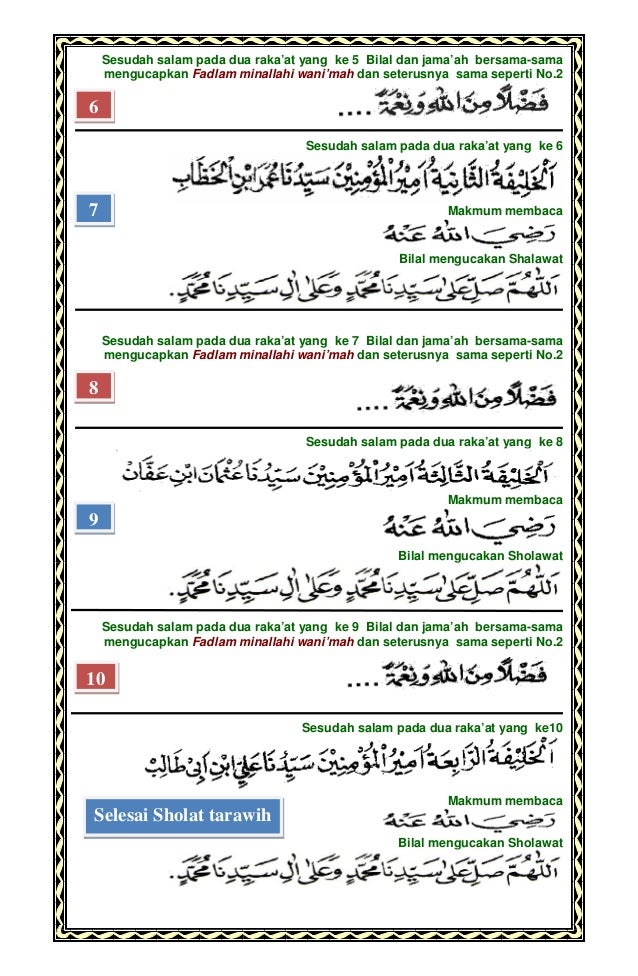 Sesudah salam pada dua raka’at yang ke 5 Bilal dan jama’ah bersama-sama
mengucapkan Fadlam minallahi wani’mah dan seterusnya sama seperti No.2
6
فَضْلًا مِنَ اللهِ وَنِعْمَةً ....
Sesudah salam pada dua raka’at yang ke 6
اَلْخَلِيْفَةُ الثَّانِيَةُ اَمِيْرُ الْمُؤْمِنِيْنَ سَيِّدُنَا عُمَرُ ابْنِ الْخَطَّابِ
7
Makmum membaca
رَضِيَ اللهُ عَنْهُ
Bilal mengucakan Shalawat
اَللّٰهُمَّ صَلِّ عَلَى سَيِّدِنَا مُحَمَّدٍ وَعَلَى اٰلِ سَيِّدِنَا مُحَمَّدٍ.
Sesudah salam pada dua raka’at yang ke 7 Bilal dan jama’ah bersama-sama
mengucapkan Fadlam minallahi wani’mah dan seterusnya sama seperti No.2
8
فَضْلًا مِنَ اللهِ وَنِعْمَةً ....
Sesudah salam pada dua raka’at yang ke 8
اَلْخَلِيْفَةُ الثَّالِثَةُ اَمِيْرُ الْمُؤْمِنِيْنَ سَيِّدُنَا عُثْمَانَ ابْنِ عَفَّانْ
Makmum membaca
9
رَضِيَ اللهُ عَنْهُ
Bilal mengucakan Sholawat
اَللّٰهُمَّ صَلِّ عَلَى سَيِّدِنَا مُحَمَّدٍ وَعَلَى اٰلِ سَيِّدِنَا مُحَمَّدٍ.
Sesudah salam pada dua raka’at yang ke 9 Bilal dan jama’ah bersama-sama
mengucapkan Fadlam minallahi wani’mah dan seterusnya sama seperti No.2
10
فَضْلًا مِنَ اللهِ وَنِعْمَةً ....
Sesudah salam pada dua raka’at yang ke10
اَلْخَلِيْفَةُ الرَّابِعَةُ اَمِيْرُ الْمُؤْمِنِيْنَ سَيِّدُنَا عَلِيِّ ابْنِ اَبِيْ طَالِبْ
Makmum membaca
Selesai Sholat tarawih
رَضِيَ اللهُ عَنْهُ
Bilal mengucakan Sholawat
اَللّٰهُمَّ صَلِّ عَلَى سَيِّدِنَا مُحَمَّدٍ وَعَلَى اٰلِ سَيِّدِنَا مُحَمَّدٍ.